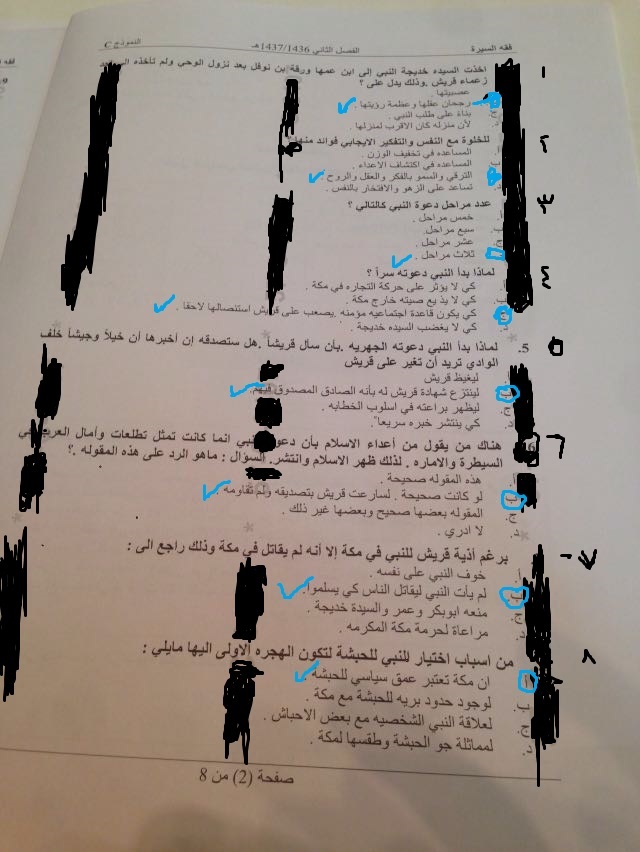 فقه السيرة الفصل الثاني 1437/1436هـ النموذج C
١ اخذت السيده خديجة النبي إلى ابن عمها ورقة بن نوفل بعد نزول الوحي ولم تأخذه
زعماء قريش .وذلك يدل على ؟
عصبيتها .
رجحان عقلها وعظمة رؤيتها .
بناءً على طلب النبي .
لأن منزله كان الاقرب لمنزلها .
٢ للخلوة مع النفس والتفكير الايجابي فوائد منها
المساعده في تخفيف الوزن .
المساعده في اكتشاف الاعداء .
الترقي والسمو بالفكر والعقل والروح
تساعد على الزهو والافتخار بالنفس .
٣ عدد مراحل دعوة النبي كالتالي ؟
خمس مراحل .
سبع مراحل .
عشر مراحل .
ثلاث مراحل .
٤ لماذا بدأ النبي دعوته سراً ؟
كي لا يؤثر على حركة التجاره في مكة .
كي لا يذيع صيته خارج مكة .
كي يكون قاعدة اجتماعيه مؤمنه .يصعب على قريش استئصالها لاحقا .
د. كي لا يغضب السيده خديجة .
٥ 5. لماذا بدأ النبي دعوته الجهريه .بأن سأل قريشاً .هل ستصدقه إن أخبرها أن خيلاً وجيشاً خلف
الوادي تريد أن تغير على قريش
ليغيظ قريش
ب. لينتزع شهادة قريش له بأنه الصادق المصدوق فيهم .
ج. ليظهر براعته في اسلوب الخطابه .
كي ينتشر خبره سريعاً .
٦ هناك من يقول من أعداء الاسلام بأن النبي انما كانت تمثل تطلعات وأمال العرب في
السيطرة والاماره . لذلك ظهر الاسلام وانتشر. السؤال : ماهو الرد على هذه المقوله .؟
هذه المقوله صحيحة .
ب. لو كانت صحيحة . لسارعت قريش بتصديقه ولم تقاومه .
ج. المقوله بعضها صحيح وبعضها غير ذلك .
د. لا ادري .
٧ برغم أذية قريش للنبي في مكة إلا أنه لم يقاتل في مكة وذلك راجع الى :
أ. خوف النبي على نفسه .
ب. لم يأت النبي ليقاتل الناس كي يسلموا.
ج. منعه ابوبكر وعمر والسيدة خديجة .
د. مراعاة لحرمة مكة المكرمه .
٨ من اسباب اختيار للنبي للحبشة لتكون الهجره الاولى اليها مايلي :
أ. ان مكة تعتبر عمق سياسي للحبشة
ب. لوجود حدود بريه للحبشة مع مكة .
ج. لعلاقة النبي الشخصيه مع بعض الاحباش .
د. لمماثلة جو الحبشة وطقسها لمكة .
صفحة (2) من 8